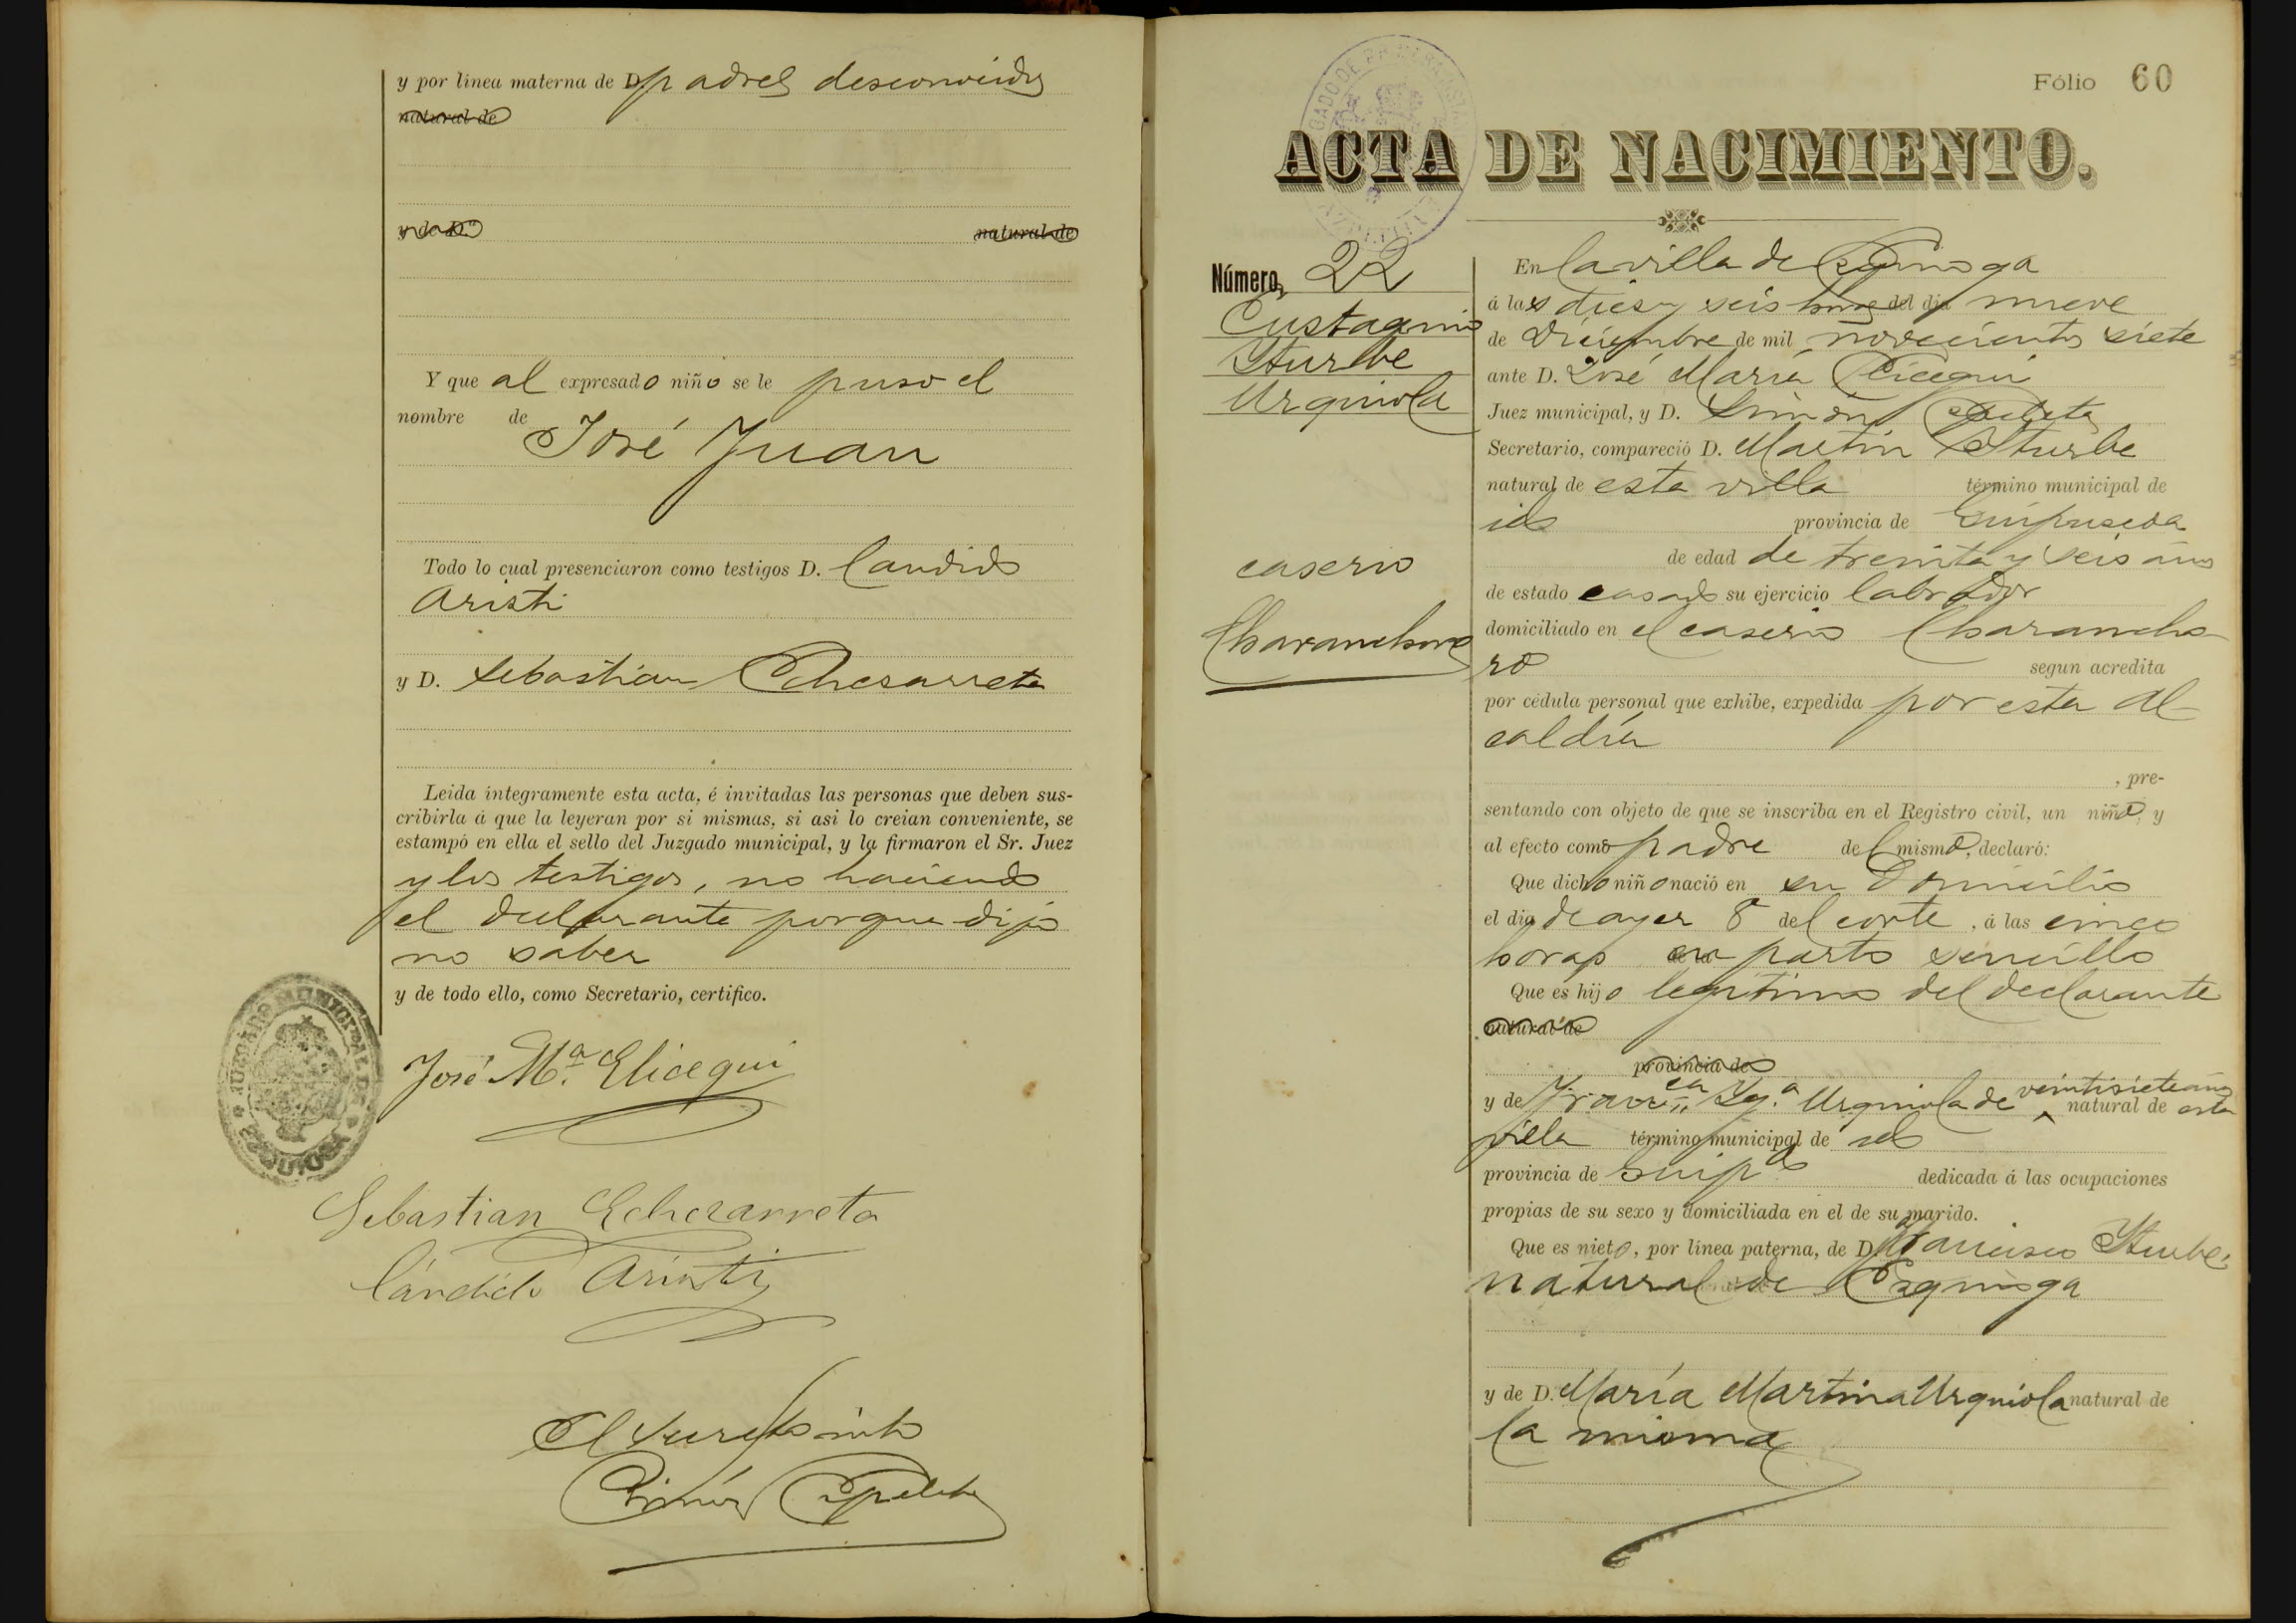 y por línea materna de D. padres desconocidos
natural de
y de D.ª natural de
Y que al expresado niño se le puso el
nombre de
José Juan
Todo lo cual presenciaron como testigos D. Candido
Aristi
y D. Sebastián Echezarreta
Leida íntegramente esta acta, é invitadas las personas que deben sus-
cribirla á que la leyeran por si mismas, si asi lo creian conveniente, se
estampó en ella el sello del Juzgado municipal, y la firmaron el Sr. Juez
y los testigos, no haciendo
el declarante porque dijo
no saber
y de todo ello, como Secretario, certifico.
JUZGADO MUNICIPAL DE EZQUIOGA
José M.ª Elicegui
Sebastian Echezarreta
Cándido Aristi
El Secretario
Simón
Fólio 60
ACTA DE NACIMIENTO.
Número 22
Eustaquio
Yturbe
Urquiola
caserio
Charanchoro
En la villa de Ezquioga
á las dies y seis horas del dia nueve
de Diciembre de mil novecientos siete
ante D. José María Elicegui
Juez municipal, y D. Simón
Secretario, compareció D. Martín Yturbe
natural de esta villa término municipal de
id provincia de Guipuscoa
de edad de treinta y seis años
de estado casado su ejercicio labrador
domiciliado en el caserio Charancho-
ro segun acredita
por cédula personal que exhibe, expedida por esta Al-
caldía
, pre-
sentando con objeto de que se inscriba en el Registro civil, un niño, y
al efecto como padre del mismo, declaró:
Que dicho niño nació en su domicilio
el dia de ayer 8 del corte, á las cinco
horas en parto sencillo
Que es hijo legítimo del declarante
natural de
provincia de
y de Fran.ca Yg.ª Urquiola de veintisiete años natural de esta
villa término municipal de id
provincia de Guip.ª dedicada á las ocupaciones
propias de su sexo y domiciliada en el de su marido.
Que es nieto, por línea paterna, de D. Francisco Yturbe,
natural de Ezquioga
y de D.ª María Martina Urquiola natural de
la misma